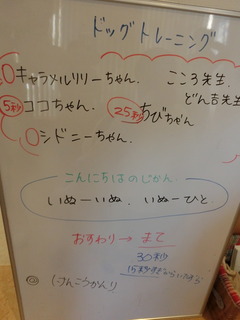 ドッグトレーニング
〇キャラメルリリーちゃん. こころ先生.
5秒 ココちゃん. 25秒 ちびちゃん どん吉先生
〇シドニーちゃん.
こんにちはのじかん.
いぬーいぬ. いぬーひと.
おすわり→まて
30秒
15秒
◎